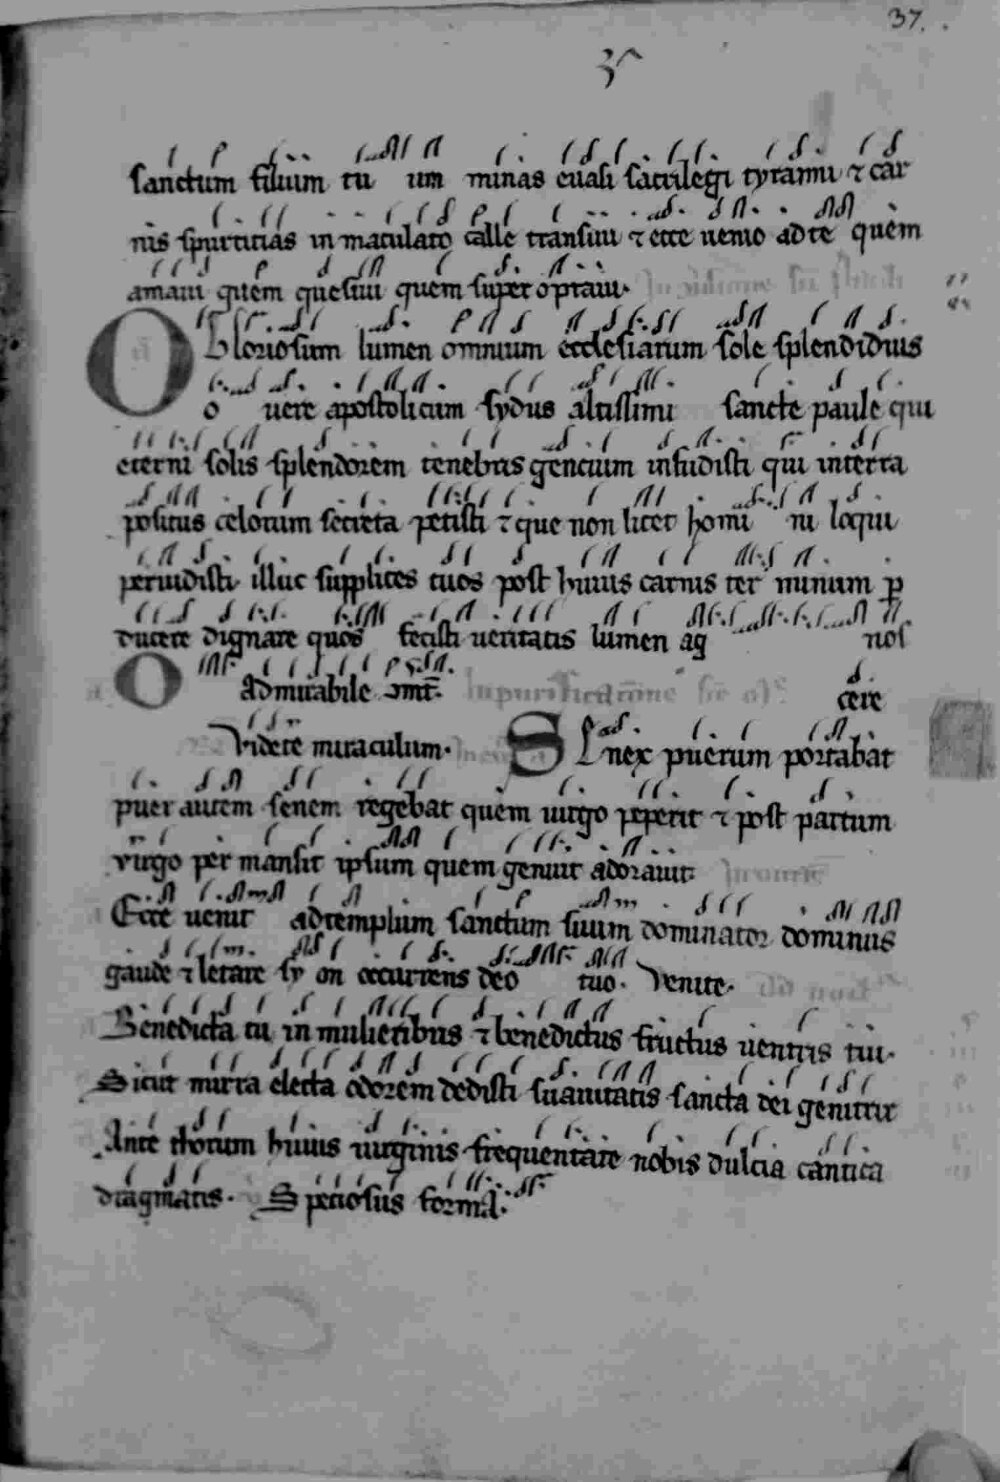 37.
sanctum filium tu um minas euasi sacrilegi tyranni ⁊ car
nis spurtitias in maculato calle transiui ⁊ ecce uenio ad te quem
amaui quem quesiui quem super optaui.
O Gloriosum lumen omnium ecclesiarum sole splendidius
o uere apostolicum sydus altissimi sancte paule qui
eterni solis splendorem tenebris gencium infudisti qui in terra
positus celorum secreta petisti ⁊ que non licet homi ni loqui
peruidisti illuc supplices tuos post huius carnis ter minum p
ducere dignare quos fecisti ueritatis lumen ag nos
O admirabile cere
Videte miraculum. S Enex puerum portabat
puer autem senem regebat quem uirgo peperit ⁊ post partum
uirgo per mansit ipsum quem genuit adorauit
Ecce uenit ad templum sanctum suum dominator dominus
gaude ⁊ letare sy on occurrens deo tuo. Venite.
Benedicta tu in mulieribus ⁊ benedictus fructus uentris tui.
Sicut mirra electa odorem dedisti suauitatis sancta dei genitrix
Ante thorum huius uirginis frequentate nobis dulcia cantica
dragmatis. Speciosus forma.